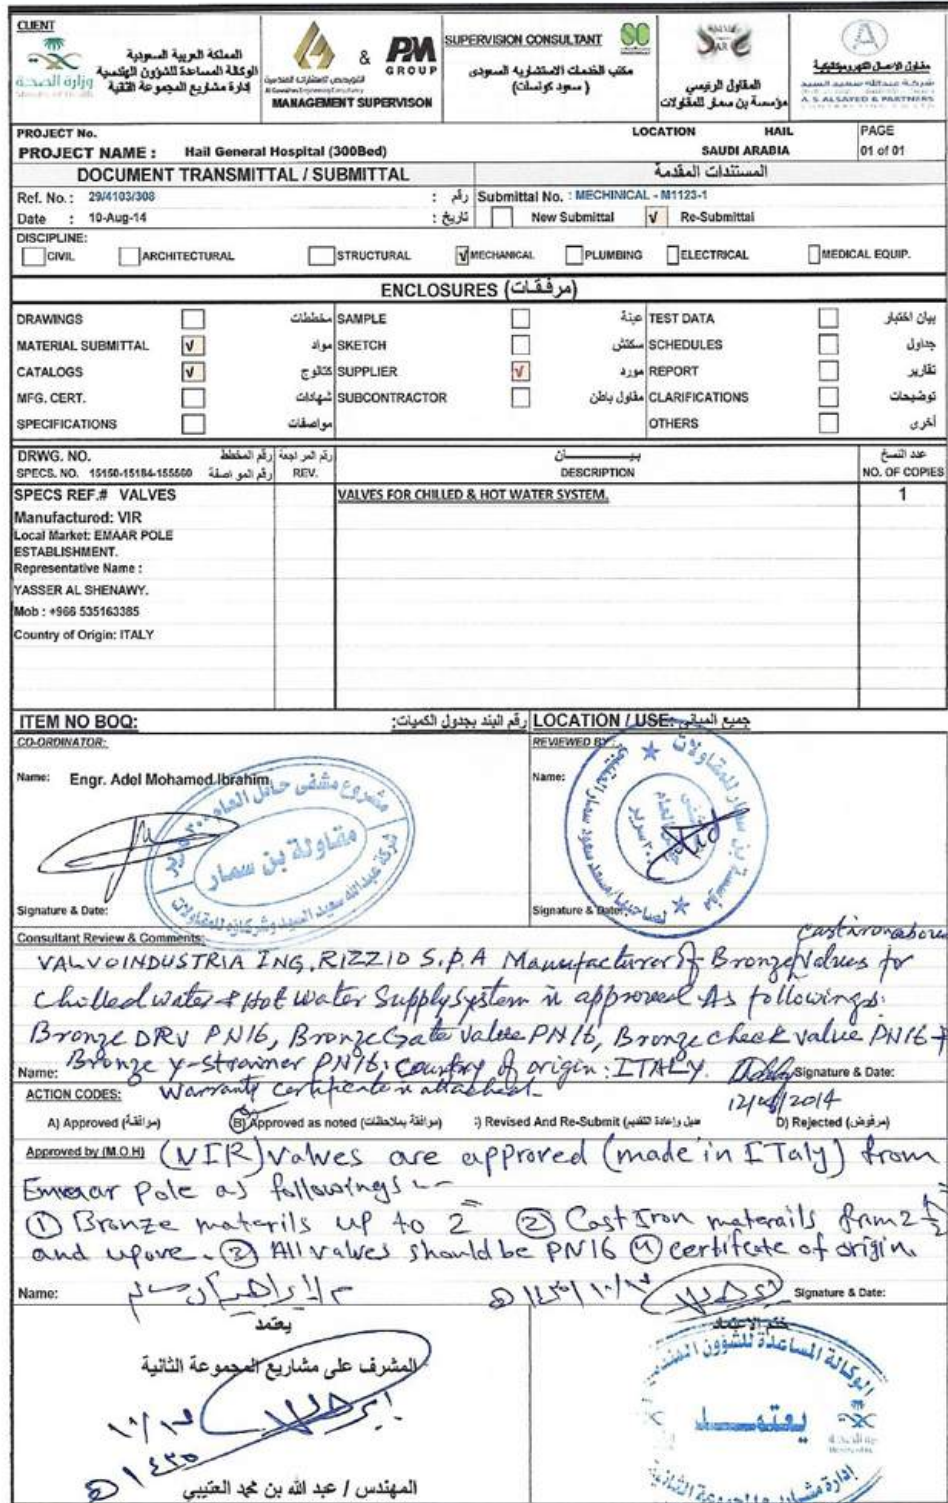 CLIENT
المملكة العربية السعودية
الوكالة المساعدة للشؤون الهندسية
إدارة مشاريع المجموعة الثانية
وزارة الصحة
&
PM
GROUP
MANAGEMENT SUPERVISON
SUPERVISION CONSULTANT
SC
مكتب الخدمات الاستشاريه السعودى
( سعود كونسلت)
المقاول الرئيسي
مؤسسة بن سمار للمقاولات
A
مقاول الاعمال الكهروميكانيكية
A.S ALSAYED & PARTNERS
PROJECT No.
LOCATION HAIL
PAGE
PROJECT NAME : Hail General Hospital (300Bed)
SAUDI ARABIA
01 of 01
DOCUMENT TRANSMITTAL / SUBMITTAL
المستندات المقدمة
Ref. No. : 29/4103/308
رقم :
Submittal No. : MECHINICAL - M1123-1
Date : 10-Aug-14
تاريخ :
New Submittal
√ Re-Submittal
DISCIPLINE:
CIVIL ARCHITECTURAL STRUCTURAL √ MECHANICAL PLUMBING ELECTRICAL MEDICAL EQUIP.
ENCLOSURES (مرفقات)
DRAWINGS مخططات SAMPLE عينة TEST DATA بيان اختبار
MATERIAL SUBMITTAL √ مواد SKETCH سكتش SCHEDULES جداول
CATALOGS √ كتالوج SUPPLIER √ مورد REPORT تقارير
MFG. CERT. شهادات SUBCONTRACTOR مقاول باطن CLARIFICATIONS توضيحات
SPECIFICATIONS مواصفات OTHERS أخرى
DRWG. NO. رقم المخطط رقم المراجعة بيـــــان عدد النسخ
SPECS. NO. 15150-15184-155560 رقم المواصفة REV. DESCRIPTION NO. OF COPIES
SPECS REF.# VALVES
VALVES FOR CHILLED & HOT WATER SYSTEM.
1
Manufactured: VIR
Local Market: EMAAR POLE
ESTABLISHMENT.
Representative Name :
YASSER AL SHENAWY.
Mob : +966 535163385
Country of Origin: ITALY
ITEM NO BOQ: رقم البند بجدول الكميات:
LOCATION / USE: جميع المباني
CO-ORDINATOR:
REVIEWED BY :
Name: Engr. Adel Mohamed Ibrahim
Name:
مشروع مشفى حائل العام ٣٠٠ سرير
مقاولة بن سمار
شركة عبدالله سعيد السيد وشركاؤه للمقاولات
مؤسسة بن سمار للمقاولات
Signature & Date:
Signature & Date:
Consultant Review & Comments:
cast iron above
VALVOINDUSTRIA ING. RIZZIO S.P.A Manufacturer of Bronze Valves for
Chilled water & Hot water Supply System is approved As followings:
Bronze DRV PN16, Bronze Gate Valve PN16, Bronze check valve PN16 +
Bronze y-strainer PN16; country of origin: ITALY.
Name:
Signature & Date:
Warranty certificate is attached.
ACTION CODES:
12/08/2014
A) Approved (موافقة) B) Approved as noted (موافقة بملاحظات) :) Revised And Re-Submit D) Rejected (مرفوض)
Approved by (M.O.H) (VIR) valves are approved (made in ITaly) from
Emaar Pole as followings :-
① Bronze materils up to 2" ② Cast Iron materails from 2 ½"
and upove. ③ All valves should be PN16 ④ certifcate of origin.
Name:
Signature & Date:
يعتمد
المشرف على مشاريع المجموعة الثانية
المهندس / عبد الله بن محمد العتيبي
ختم الاعتماد
الوكالة المساعدة للشؤون الهندسية
يعتمد